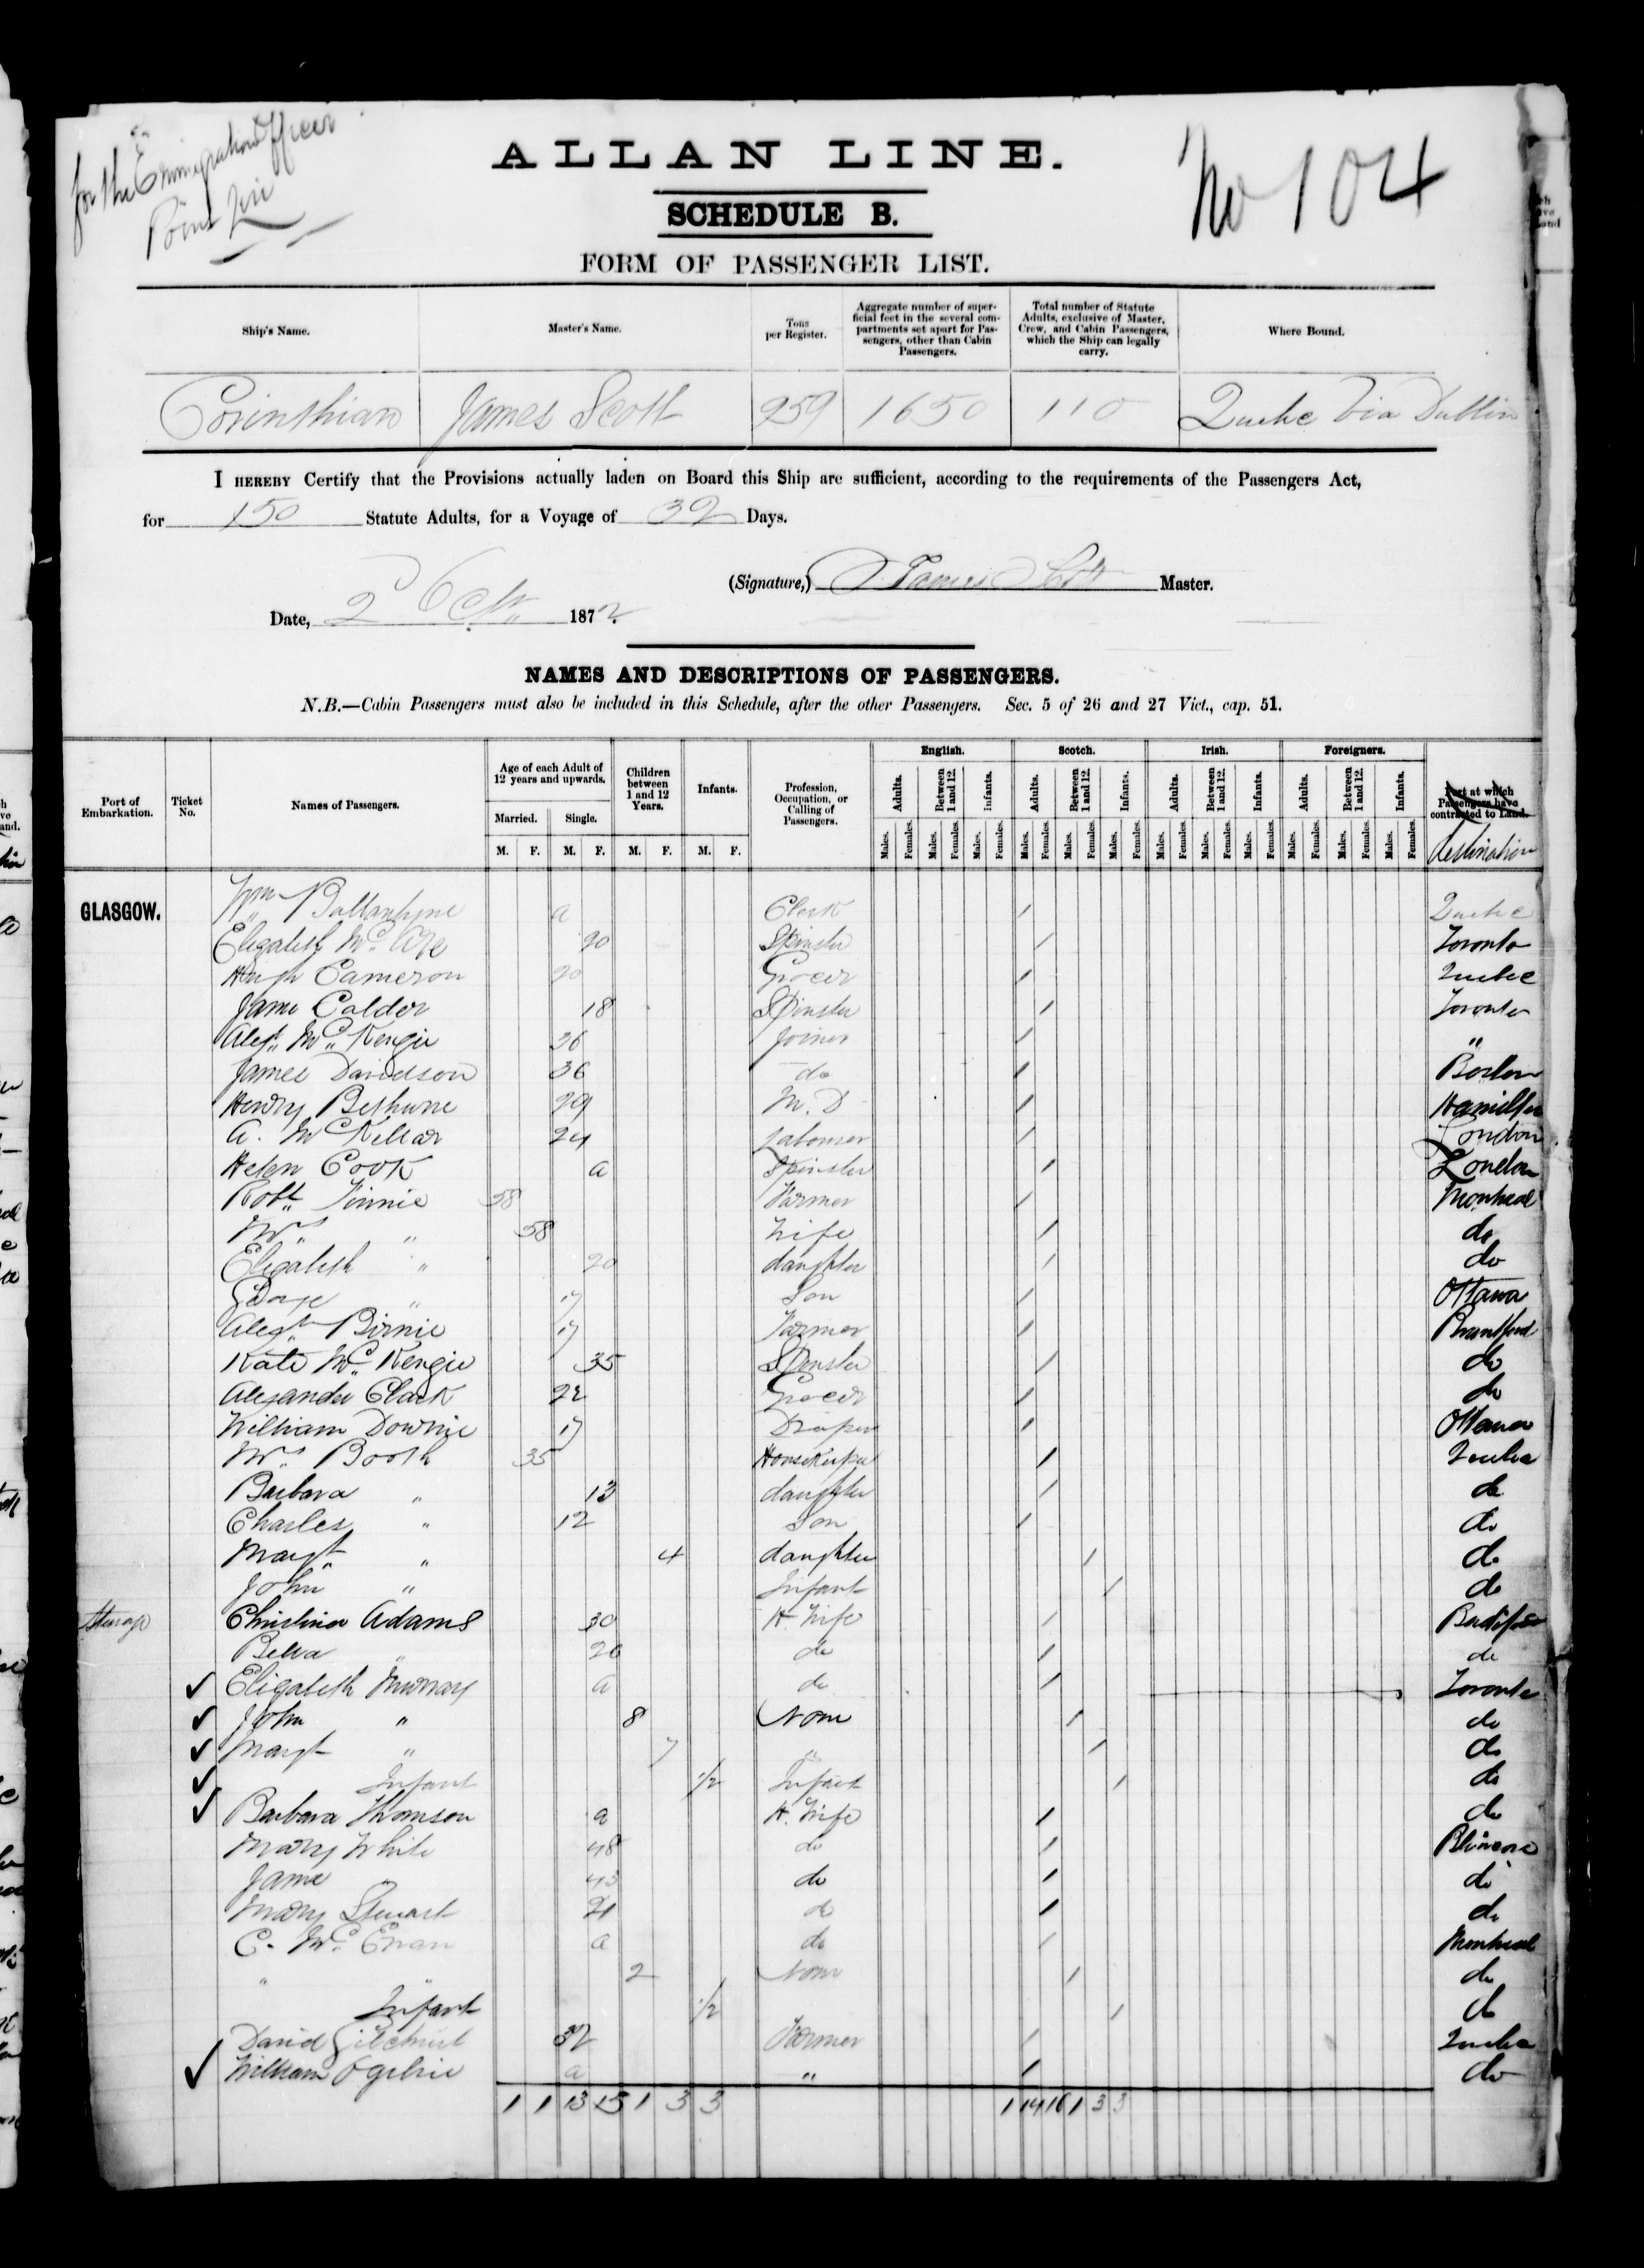 for the Emigration Officer
Point Levi
No 104
ALLAN LINE.
SCHEDULE B.
FORM OF PASSENGER LIST.
Ship's Name. Master's Name. Tons per Register. Aggregate number of superficial feet in the several compartments set apart for Passengers, other than Cabin Passengers. Total number of Statute Adults, exclusive of Master, Crew, and Cabin Passengers, which the Ship can legally carry. Where Bound.
Corinthian James Scott 259 1650 110 Quebc Via Dublin
I HEREBY Certify that the Provisions actually laden on Board this Ship are sufficient, according to the requirements of the Passengers Act,
for 150 Statute Adults, for a Voyage of 32 Days.
(Signature,) James Scott Master.
Date, 2 Octr 1872.
NAMES AND DESCRIPTIONS OF PASSENGERS.
N.B.—Cabin Passengers must also be included in this Schedule, after the other Passengers. Sec. 5 of 26 and 27 Vict., cap. 51.
Port of Embarkation. Ticket No. Names of Passengers. Age of each Adult of 12 years and upwards. Children between 1 and 12 Years. Infants. Profession, Occupation, or Calling of Passengers. English. Scotch. Irish. Foreigners. Port at which Passengers have contracted to Land.
Married. Single. Adults. Between 1 and 12. Infants. Adults. Between 1 and 12. Infants. Adults. Between 1 and 12. Infants. Adults. Between 1 and 12. Infants. destination
M. F. M. F. M. F. M. F. Males. Females. Males. Females. Males. Females. Males. Females. Males. Females. Males. Females. Males. Females. Males. Females. Males. Females. Males. Females. Males. Females. Males. Females.
GLASGOW. Wm Ballantyne a Clerk Quebec
Elizabeth Mc 20 Spinster Toronto
Hugh Cameron 20 Grocer Quebec
Jane Calder 18 Spinster Toronto
Alexr McKenzie 36 Joiner "
James Davidson 36 do Boston
Henry Bethune 29 M.D Hamilton
A. McKellar 24 Labourer London
Helen Cook a Spinster London
Robt Finnie 58 Farmer Montreal
Mrs " 58 Wife do
Elizabeth " 20 daughter do
George " 17 Son Ottawa
Alexr Birnie 17 Farmer Brantford
Kate McKenzie 35 Spinster do
Alexander Clark 22 Grocer do
William Downie 17 Draper Ottawa
Mrs Booth 35 Housekeeper Quebec
Barbara " 13 daughter do
Charles " 12 Son do
Margt " 4 daughter do
John " Infant do
Steerage Christina Adams 30 H. Wife
Bella " 20 do do
✓ Elizabeth Murray a do Toronto
✓ John " 8 None do
✓ Margt " 7 " do
✓ Infant 1/2 Infant do
✓ Barbara Thomson a H. Wife do
Mary White 48 do
Jane " 43 do do
Mary Stewart 21 do do
C. McEwan a do Montreal
" " 2 None do
Infant 1/2 do
David Gilchrist 32 Farmer Quebec
✓ William Ogilvie a " do
1 1 13 15 1 3 3 1 14 16 1 3 3